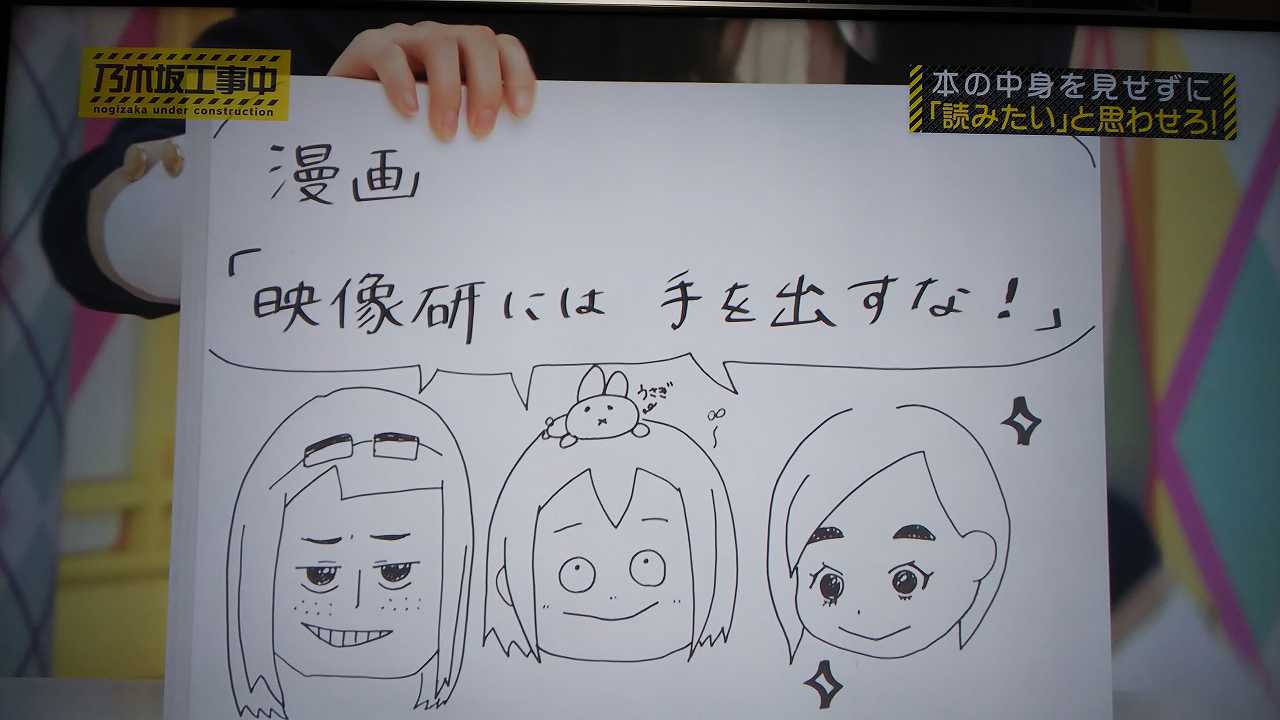 乃木坂工事中
nogizaka under construction
本の中身を見せずに
「読みたい」と思わせろ!
漫画
「映像研には 手を出すな!」
うさぎ